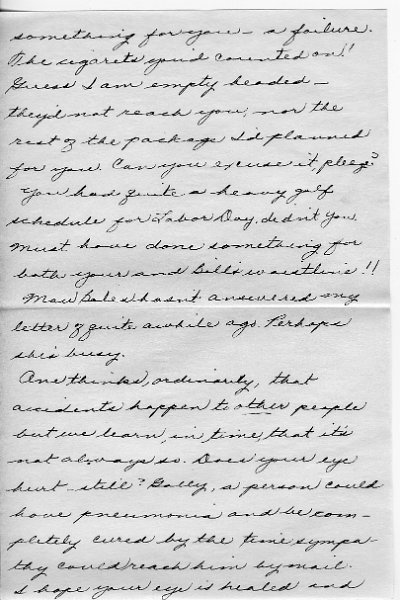 something for you - a failure.
The cigarets you'd counted on!!
Guess I am empty headed -
they'd not reach you, nor the
rest of the package I'd planned
for you. Can you excuse it, pleez?
You had quite a heavy golf
schedule for Labor Day, didn't you.
Must have done something for
both your and Bill's waistline!!
Gales hasn't answered my
letter of quite awhile ago. Perhaps
she's busy.
One thinks, ordinarily, that
accidents happen to other people
but we learn, in time, that it's
not always so. Does your eye
hurt - still? Golly, a person could
have pneumonia and be com-
pletely cured by the time sympa-
thy could reach him by mail.
I hope your eye is healed and